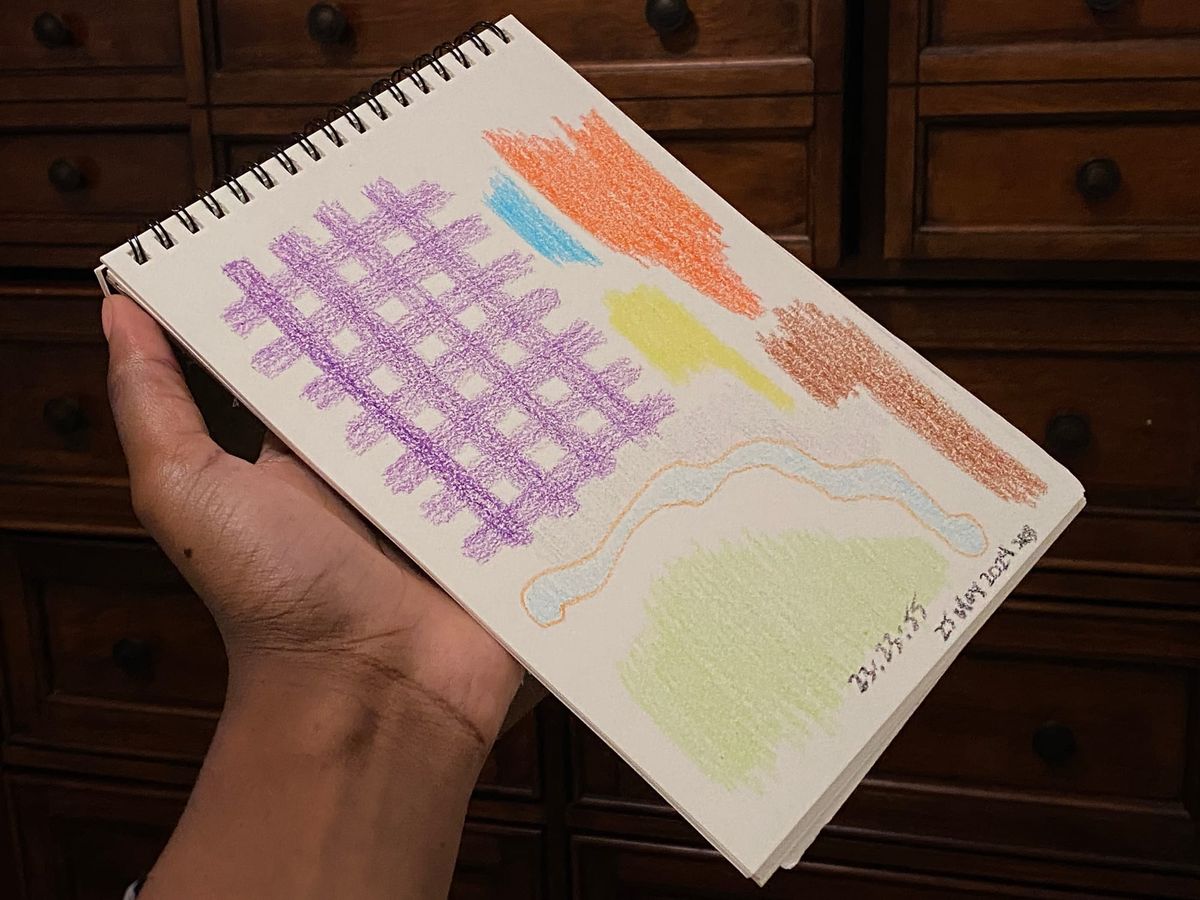 23:23:55
25 May 2024